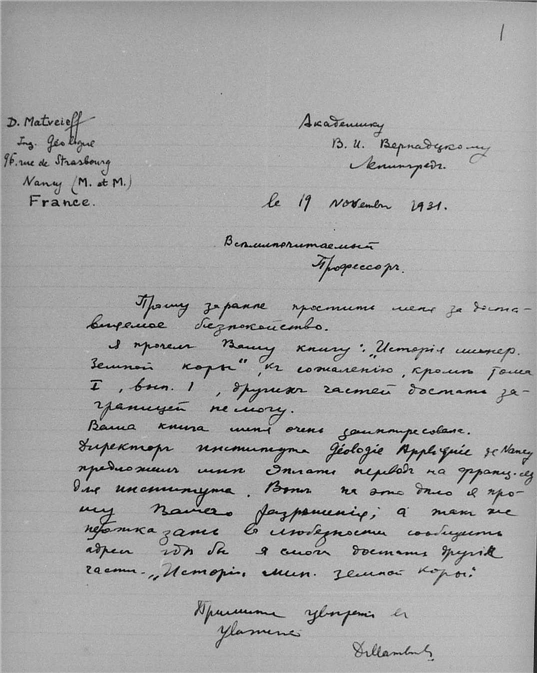 1
D. Matveieff
Ing. Géologue
96. rue de Strasbourg
Nancy (M. et M.)
France.
Академику
В. И. Вернадскому
Ленинградъ.
le 19 November 1931.
Всѣмипочитаемый
Профессоръ.
Прошу заранѣе простить меня за доста-
вляемое безпокойство.
Я прочелъ Вашу книгу: „Исторія минер.
Земной коры", къ сожалѣнію, кромѣ тома
I, вып. 1, другихъ частей достать за-
границей не могу.
Ваша книга меня очень заинтересовала.
Директоръ института Géologie Appliquée de Nancy
предложилъ мнѣ сдѣлать переводъ на француз.
для института. Вотъ на это дѣло я про-
шу Вашего разрѣшенія; а такъ же
не отказать въ любезности сообщить
адресъ гдѣ бы я смогъ достать другія
части „Исторія мин. земной коры".
Примите увѣренія въ
уваженіи